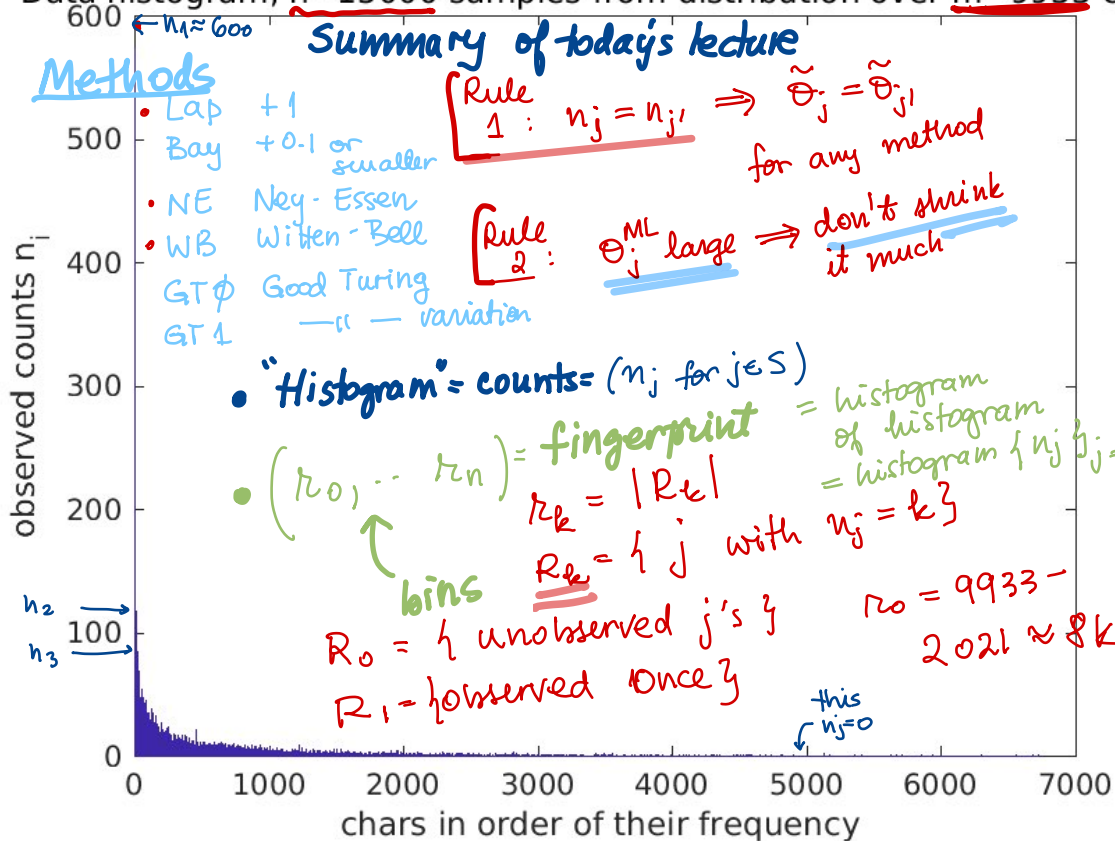 Data histogram, n=15000 samples from distribution over m=9933 c
← n₁≈600
Summary of today's lecture
Methods
• Lap +1
Bay +0.1 or smaller
• NE Ney-Essen
• WB Witten-Bell
GTø Good Turing
GT1 —〃— variation
Rule 1: nⱼ = nⱼ' ⟹ θ̃ⱼ = θ̃ⱼ'
for any method
Rule 2: θⱼᴹᴸ large ⟹ don't shrink
it much
• "Histogram" = counts = (nⱼ for j∈S)
• (r₀, ... rₙ) = fingerprint = histogram
of histogram
= histogram {nⱼ}ⱼ=
bins
rₖ = |Rₖ|
Rₖ = { j with nⱼ = k}
R₀ = { unobserved j's }
R₁ = {observed once}
r₀ = 9933 −
2021 ≈ 8k
n₂ →
n₃ →
this
nⱼ=0
observed counts nᵢ
600
500
400
300
200
100
0
0 1000 2000 3000 4000 5000 6000 7000
chars in order of their frequency